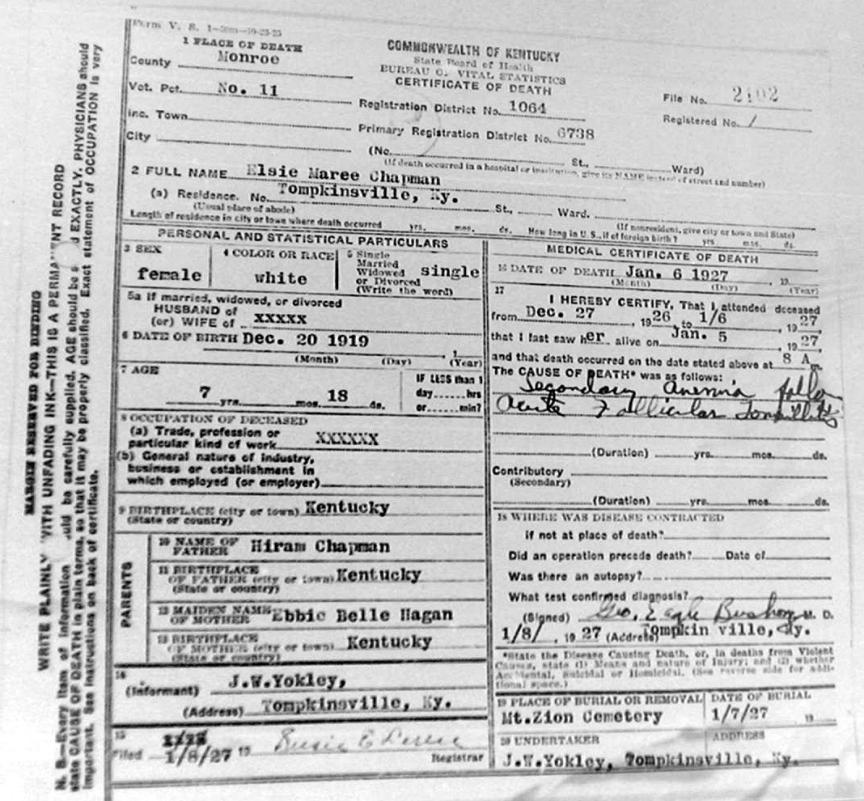 Form V. S. 1
1 PLACE OF DEATH
County Monroe
Vot. Pct. No. 11
Inc. Town
City
COMMONWEALTH OF KENTUCKY
State Board of Health
BUREAU OF VITAL STATISTICS
CERTIFICATE OF DEATH
Registration District No. 1064
Primary Registration District No. 6738
File No. 2102
Registered No. 1
(No. St., Ward)
(If death occurred in a hospital or institution, give its NAME instead of street and number)
2 FULL NAME Elsie Maree Chapman
(a) Residence. No. Tompkinsville, Ky. St., Ward.
(Usual place of abode) (If nonresident, give city or town and State)
Length of residence in city or town where death occurred yrs. mos. ds. How long in U. S., if of foreign birth? yrs. mos. ds.
PERSONAL AND STATISTICAL PARTICULARS
3 SEX
female
4 COLOR OR RACE
white
5 Single
Married
Widowed
or Divorced
(Write the word)
single
5a If married, widowed, or divorced
HUSBAND of
(or) WIFE of XXXXX
6 DATE OF BIRTH Dec. 20 1919
(Month) (Day) (Year)
7 AGE
7 yrs. mos. 18 ds.
IF LESS than 1
day hrs
or min?
8 OCCUPATION OF DECEASED
(a) Trade, profession or
particular kind of work XXXXXX
(b) General nature of industry,
business or establishment in
which employed (or employer)
9 BIRTHPLACE (city or town) Kentucky
(State or country)
PARENTS
10 NAME OF
FATHER Hiram Chapman
11 BIRTHPLACE
OF FATHER (city or town) Kentucky
(State or country)
12 MAIDEN NAME
OF MOTHER Ebbie Belle Hagan
13 BIRTHPLACE
OF MOTHER (city or town) Kentucky
(State or country)
14
(Informant) J.W.Yokley,
(Address) Tompkinsville, Ky.
15
Filed 1/8/27 19
Registrar
MEDICAL CERTIFICATE OF DEATH
16 DATE OF DEATH Jan. 6 1927 19
(Month) (Day) (Year)
17
I HEREBY CERTIFY, That I attended deceased
from Dec. 27 1926 to 1/6 1927
that I last saw her alive on Jan. 5 1927
and that death occurred on the date stated above at 8 A m.
The CAUSE OF DEATH* was as follows:
Secondary Anemia
Acute Follicular Tonsillitis
(Duration) yrs. mos. ds.
Contributory
(Secondary)
(Duration) yrs. mos. ds.
18 WHERE WAS DISEASE CONTRACTED
if not at place of death?
Did an operation precede death? Date of
Was there an autopsy?
What test confirmed diagnosis?
(Signed) Geo. Eagle Bushong M. D.
1/8/, 1927 (Address) Tompkin ville, Ky.
*State the Disease Causing Death, or, in deaths from Violent
Causes, state (1) Means and nature of Injury; and (2) whether
Accidental, Suicidal or Homicidal. (See reverse side for addi-
tional space.)
19 PLACE OF BURIAL OR REMOVAL
Mt.Zion Cemetery
DATE OF BURIAL
1/7/27 19
20 UNDERTAKER
ADDRESS
J.W.Yokley, Tompkinsville, Ky.
MARGIN RESERVED FOR BINDING
WRITE PLAINLY WITH UNFADING INK—THIS IS A PERMANENT RECORD
N. B.—Every item of information should be carefully supplied. AGE should be EXACTLY. PHYSICIANS should
state CAUSE OF DEATH in plain terms, so that it may be properly classified. Exact statement of OCCUPATION is very
important. See instructions on back of certificate.